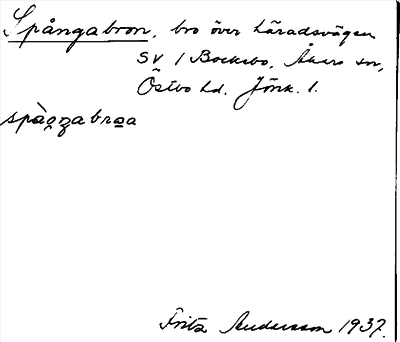 Spångabron, bro över häradsvägen
SV / Bocksbo, Åkers sn,
Östbo hd. Jönk. l.
spåŋgabroa
Fritz Andersson 1937.